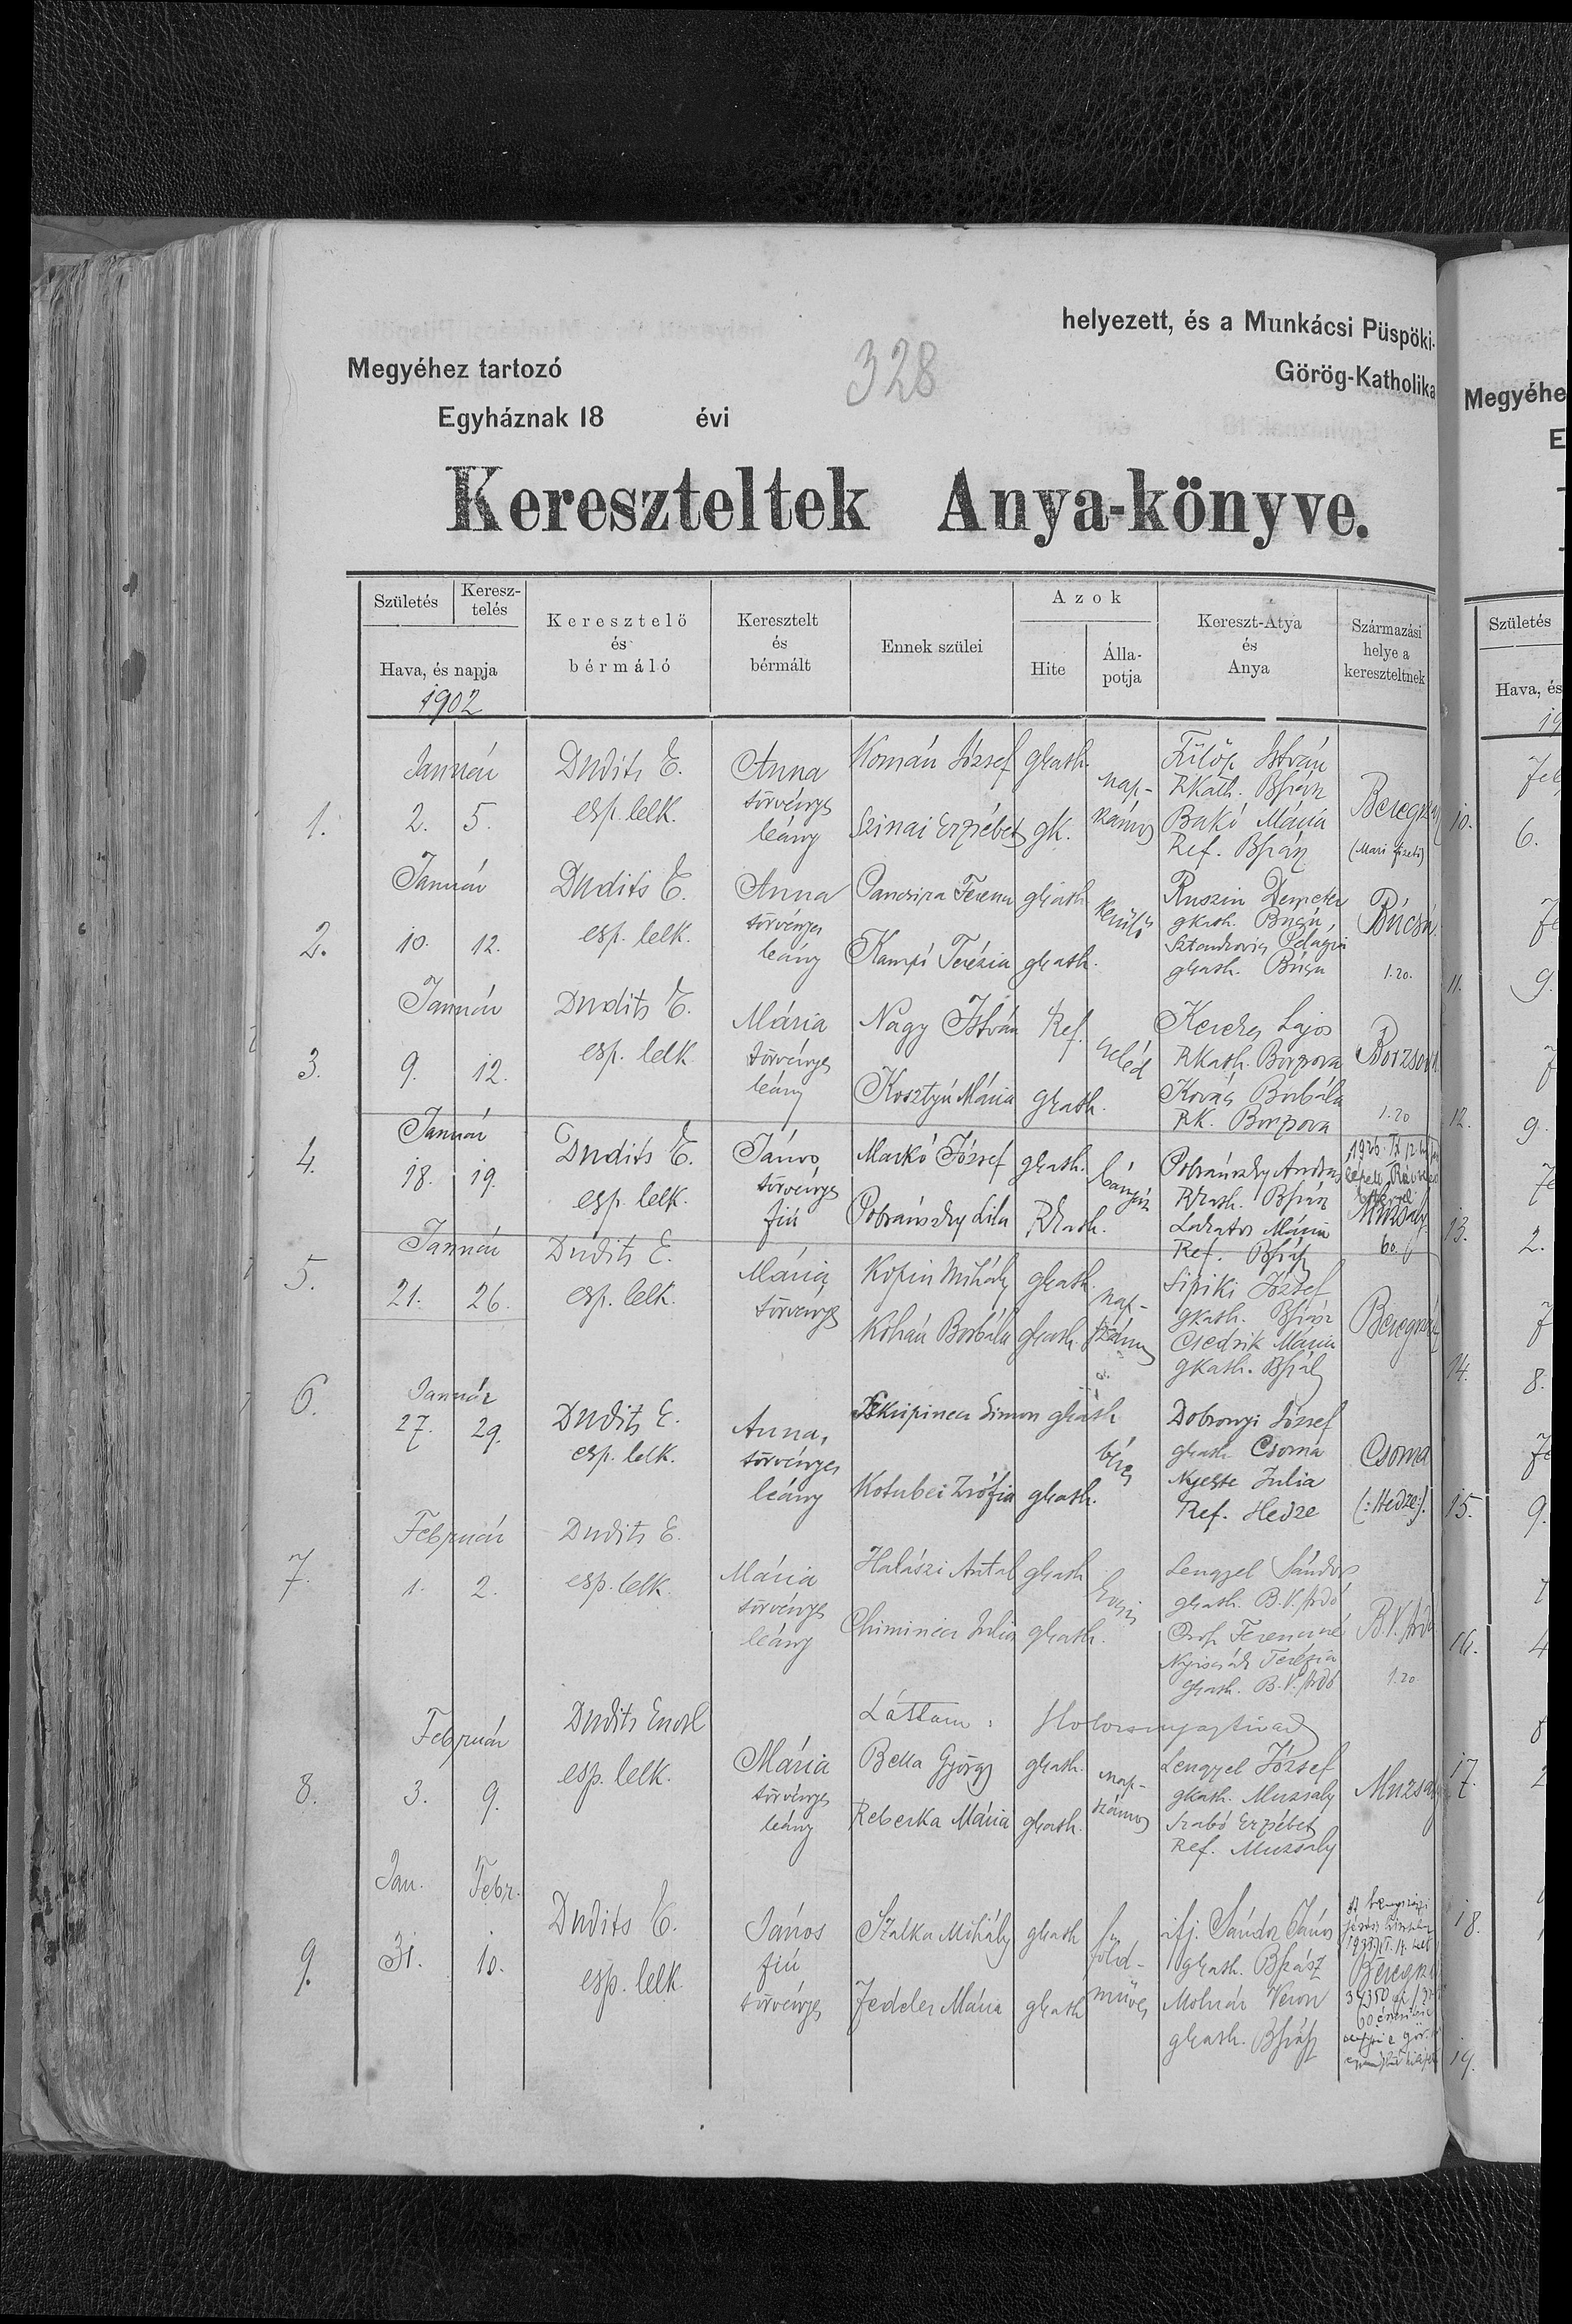 helyezett, és a Munkácsi Püspöki-
Megyéhez tartozó
328
Görög-Katholika
Egyháznak 18 évi
Kereszteltek Anya-könyve.
Születés
Keresz-telés
Hava, és napja
1902
Keresztelö és bérmáló
Keresztelt és bérmált
Ennek szülei
Azok
Hite
Álla-potja
Kereszt-Atya és Anya
Származási helye a kereszteltnek
1.
Január
2. 5.
Dudits E.
esp. lelk.
Anna
törvényes
leány
Komán József gkath.
Szinai Erzsébet gk.
nap-
számos
Fülöp István
Rkath. Bszász
Bakó Mária
Ref. Bszász
Beregsz
2.
Január
10. 12.
Dudits E.
esp. lelk.
Anna
törvényes
leány
gkath
Kampó Terézia gkath.
Ruszin Demeter
gkath. Búcsú
gkath. Búcsu
Búcsú.
1.20.
3.
Január
9. 12.
Dudits E.
esp. lelk
Mária
törvényes
leány
Nagy István Ref.
Kosztyú Mária gkath.
cseléd
Kerekes Lajos
Rkath. Borzsova
Kovács Borbála
RK. Borzsova
Borzsova
1.20
4.
Január
18. 19.
Dudits E.
esp. lelk.
János
törvényes
fiú
Markó József gkath.
Pobránszky Lila Rkath.
bányász
Pobránszky András
Rkath. Bszász
Lakatos Mária
Ref. Bszász
Muzsaly
60.
5.
Január
21. 26.
Dudits E.
esp. lelk.
Mária
törvényes
Kopin Mihály gkath.
Kohán Borbála gkath.
nap-
számos
Sipiki József
gkath. Bszász
Csedrik Mária
gkath. Bszász
Beregszász
6.
Január
27. 29.
Dudits E.
esp. lelk.
Anna,
törvényes
leány
Skripinecz Simon gkath
Kotubei Zsófia gkath.
béres
Dobronyi József
gkath Csoma
Nyeste Julia
Ref. Hedze
Csoma
(:Hedze:).
7.
Február
1. 2.
Dudits E.
esp. lelk.
Mária
törvényes
leány
Halászi Antal gkath
Chiminecz Julia gkath.
kocsis
Lengyel Sándor
gkath. B.V. Ardó
Orosz Ferenczné
Terézia
gkath. B.V. Ardó
B.V. Ardó
1.20
Láttam:
8.
Február
3. 9.
Dudits Enoel
esp. lelk.
Mária
törvényes
leány
Bella György gkath.
Reberka Mária gkath.
nap-
számos
Lengyel József
gkath. Muzsaly
Szabó Erzsébet
Ref. Muzsaly
Muzsaly
9.
Jan. Febr.
31. 10.
Dudits E.
esp. lelk
János
fiú
törvényes
Szalka Mihály gkath
Fedeles Mária gkath
föld-
műves
ifj. Sándor János
gkath. Bszász
Molnár Veron
gkath. Bszász
Beregsz
Megyéhe
E
Születés
Hava, és
19
10.
6.
11.
9.
12.
9.
13.
2.
14.
8.
15.
9.
16.
4
17.
2
18.
19.